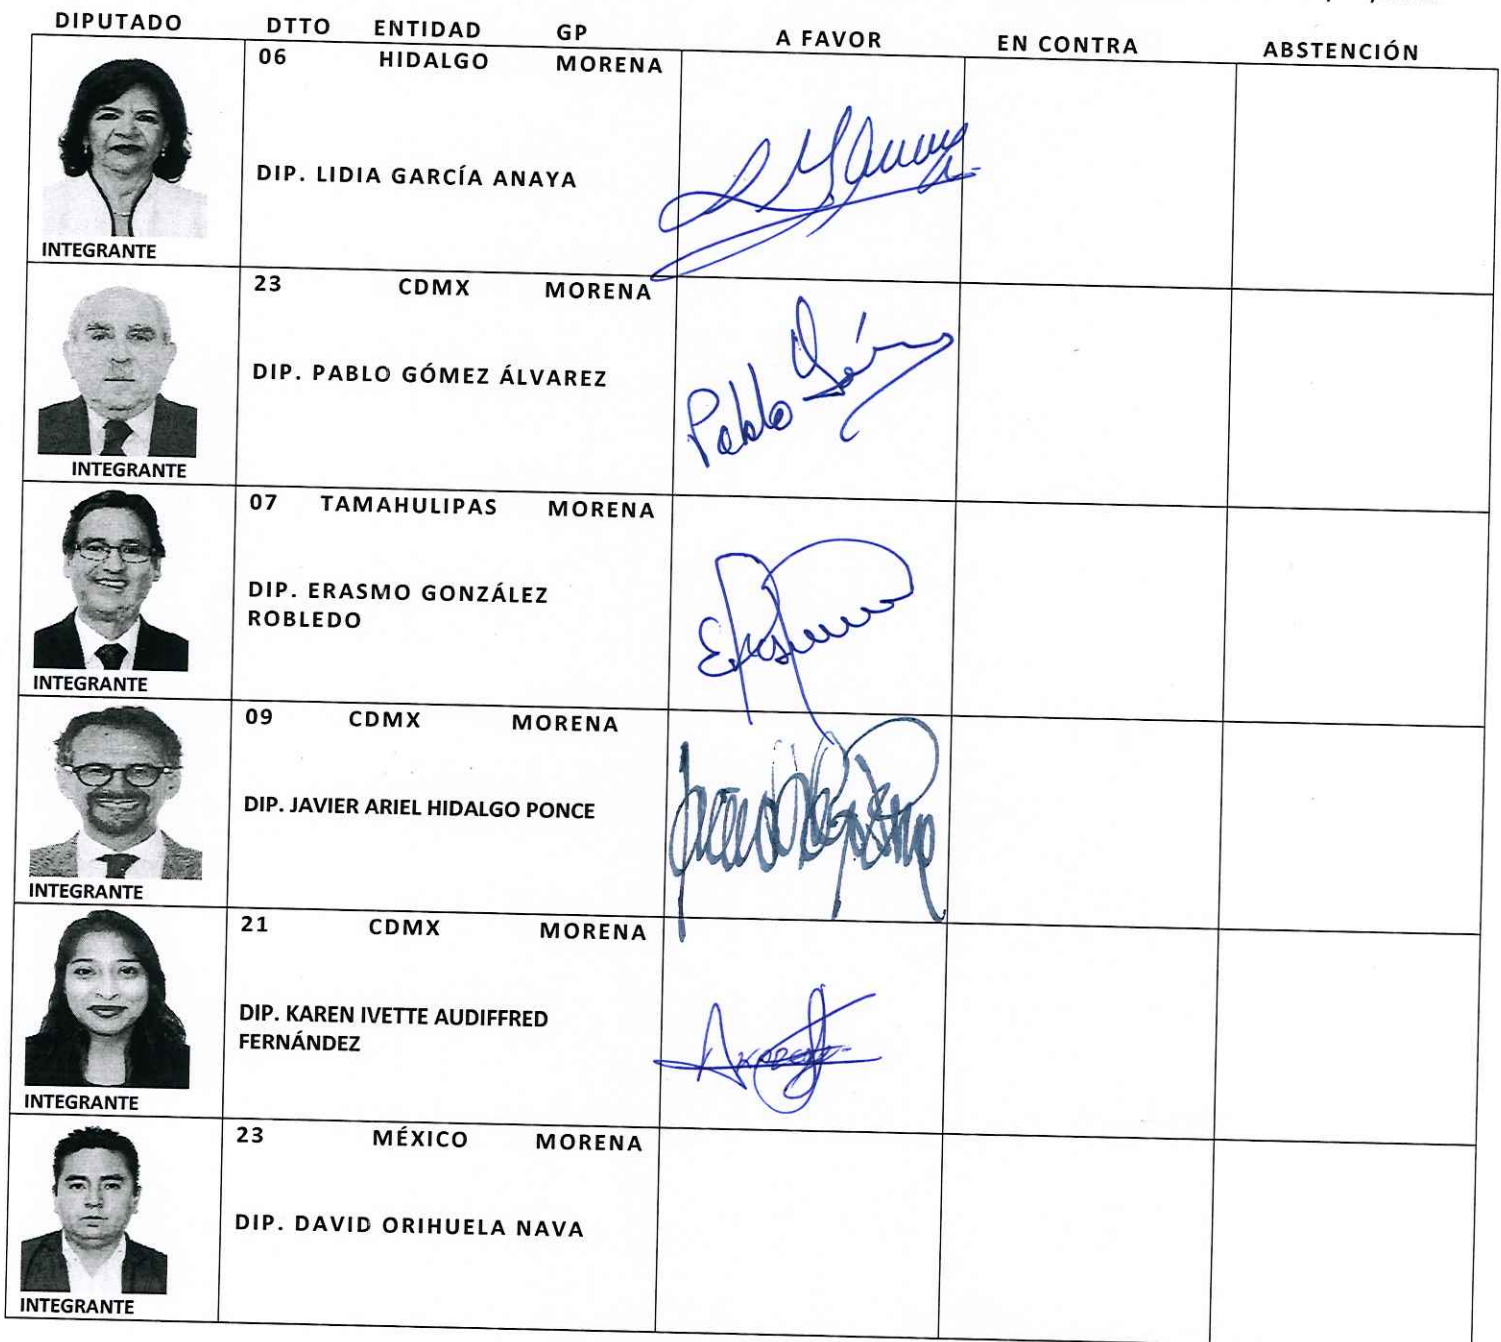 DIPUTADO DTTO ENTIDAD GP A FAVOR EN CONTRA ABSTENCIÓN
06 HIDALGO MORENA
DIP. LIDIA GARCÍA ANAYA
INTEGRANTE
23 CDMX MORENA
DIP. PABLO GÓMEZ ÁLVAREZ
Pablo Góm
INTEGRANTE
07 TAMAHULIPAS MORENA
DIP. ERASMO GONZÁLEZ
ROBLEDO
INTEGRANTE
09 CDMX MORENA
DIP. JAVIER ARIEL HIDALGO PONCE
INTEGRANTE
21 CDMX MORENA
DIP. KAREN IVETTE AUDIFFRED
FERNÁNDEZ
INTEGRANTE
23 MÉXICO MORENA
DIP. DAVID ORIHUELA NAVA
INTEGRANTE